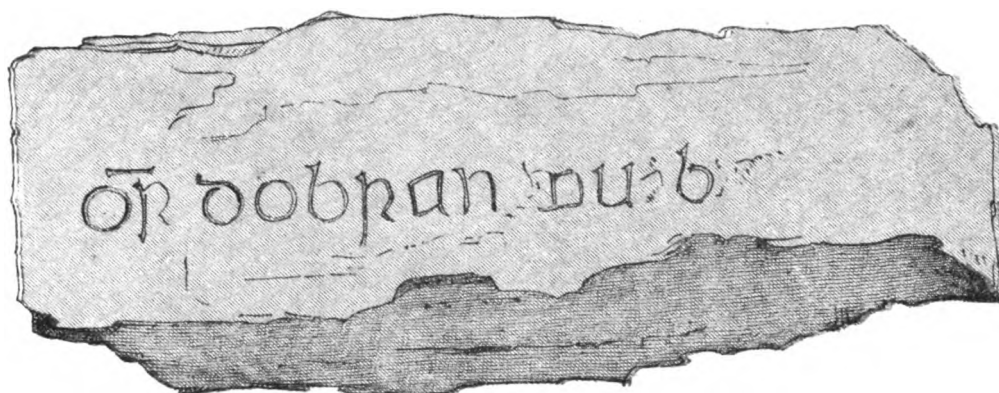 o̅r dobran duib